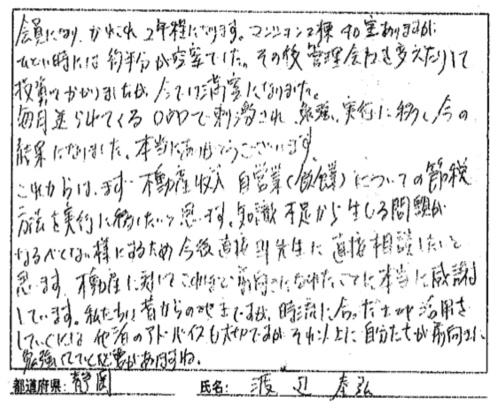 会員になり、かれこれ2年程になります。マンション2棟40室ありますが
ひどい時には約半分が空室でした。その後管理会社を変えたりして
投資もかかりましたが、今では満室になりました。
毎月送られてくるDVDで刺激され、勉強、実行に移し、今の
結果になりました。本当にありがとうございます。
これからは、まず不動産収入、自営業(飲食業)についての節税
方法を実行に移したいと思います。知識不足から生じる問題が
なるべくない様にするため今後直接 先生に直接相談したいと
思います。不動産に対してこれほど前向きになれたことに本当に感謝
しています。私たちは昔からの地主ですが、時話に合った土地活用を
していくには他者のアドバイスも大切ですが、それ以上に自分たちが前向きに
勉強していく必要がありますね。
都道府県:静岡 氏名:渡辺 泰弘